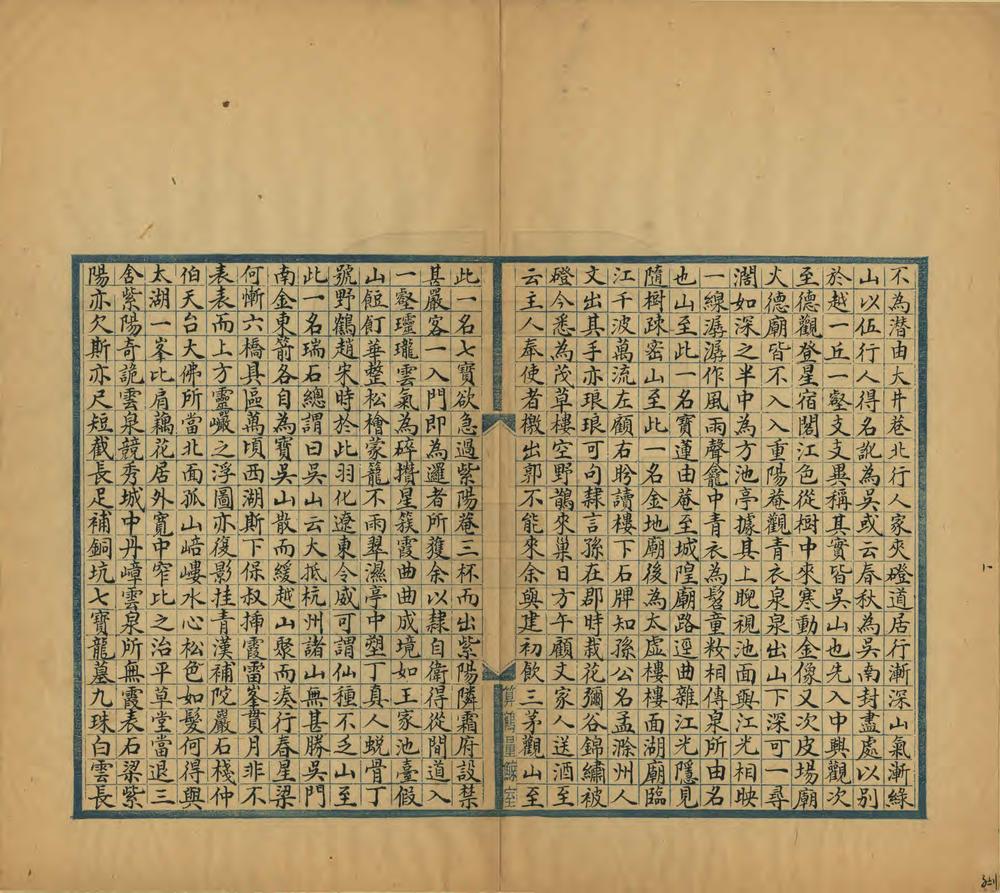 不為潜由大井巷北行人家夾磴道居行漸深山氣漸綠
山以伍行人得名訛為吳或云春秋為吳南封盡處以別
於越一丘一壑支支異稱其實皆吳山也先入中興觀次
至德觀登星宿閣江色從樹中來寒動金像又次皮場廟
火德廟皆不入入重陽菴觀青衣泉泉出山下深可一尋
濶如深之半中為方池亭據其上睨視池面與江光相映
一線潺潺作風雨聲龕中青衣為髫童粧相傳泉所由名
也山至此一名寶蓮由菴至城隍廟路逕曲雜江光隱見
隨樹踈密山至此一名金地廟後為太虛樓樓面湖廟臨
江千波萬流左顧右盻讀樓下石牌知孫公名孟滁州人
文出其手亦琅琅可句隸言孫在郡時栽花彌谷錦繡被
磴今悉為茂草樓空野鵲來巢日方午顧文家人送酒至
云主人奉使者檄出郭不能來余與建初飲三茅觀山至
算鶴量鯨室
此一名七寶欲急過紫陽菴三杯而出紫陽隣霜府設禁
甚嚴客一入門即為邏者所獲余以隸自衛得從間道入
一壑瓏瓏雲氣為碎攢星簇霞曲曲成境如王家池臺假
山餖飣華整松檜蒙籠不雨翠濕亭中塑丁真人蛻骨丁
號野鶴趙宋時於此羽化遼東令威可謂仙種不乏山至
此一名瑞石總謂曰吳山云大抵杭州諸山無甚勝吳門
南金東箭各自為寶吳山散而緩越山聚而凑行春星梁
何慚六橋具區萬頃西湖斯下保叔揷霞雷峯貫月非不
表表而上方靈巖之浮圖亦復影挂青漢補陀嚴石棧仲
伯天台大佛所當北面孤山崉嶁水心松色如髮何得與
太湖一峯比肩藕花居外寛中窄比之治平草堂當退三
舍紫陽奇詭雲泉競秀城中丹嶂雲泉所無霞表石梁紫
陽亦欠斯亦尺短截長足補銅坑七寶龍墓九珠白雲長